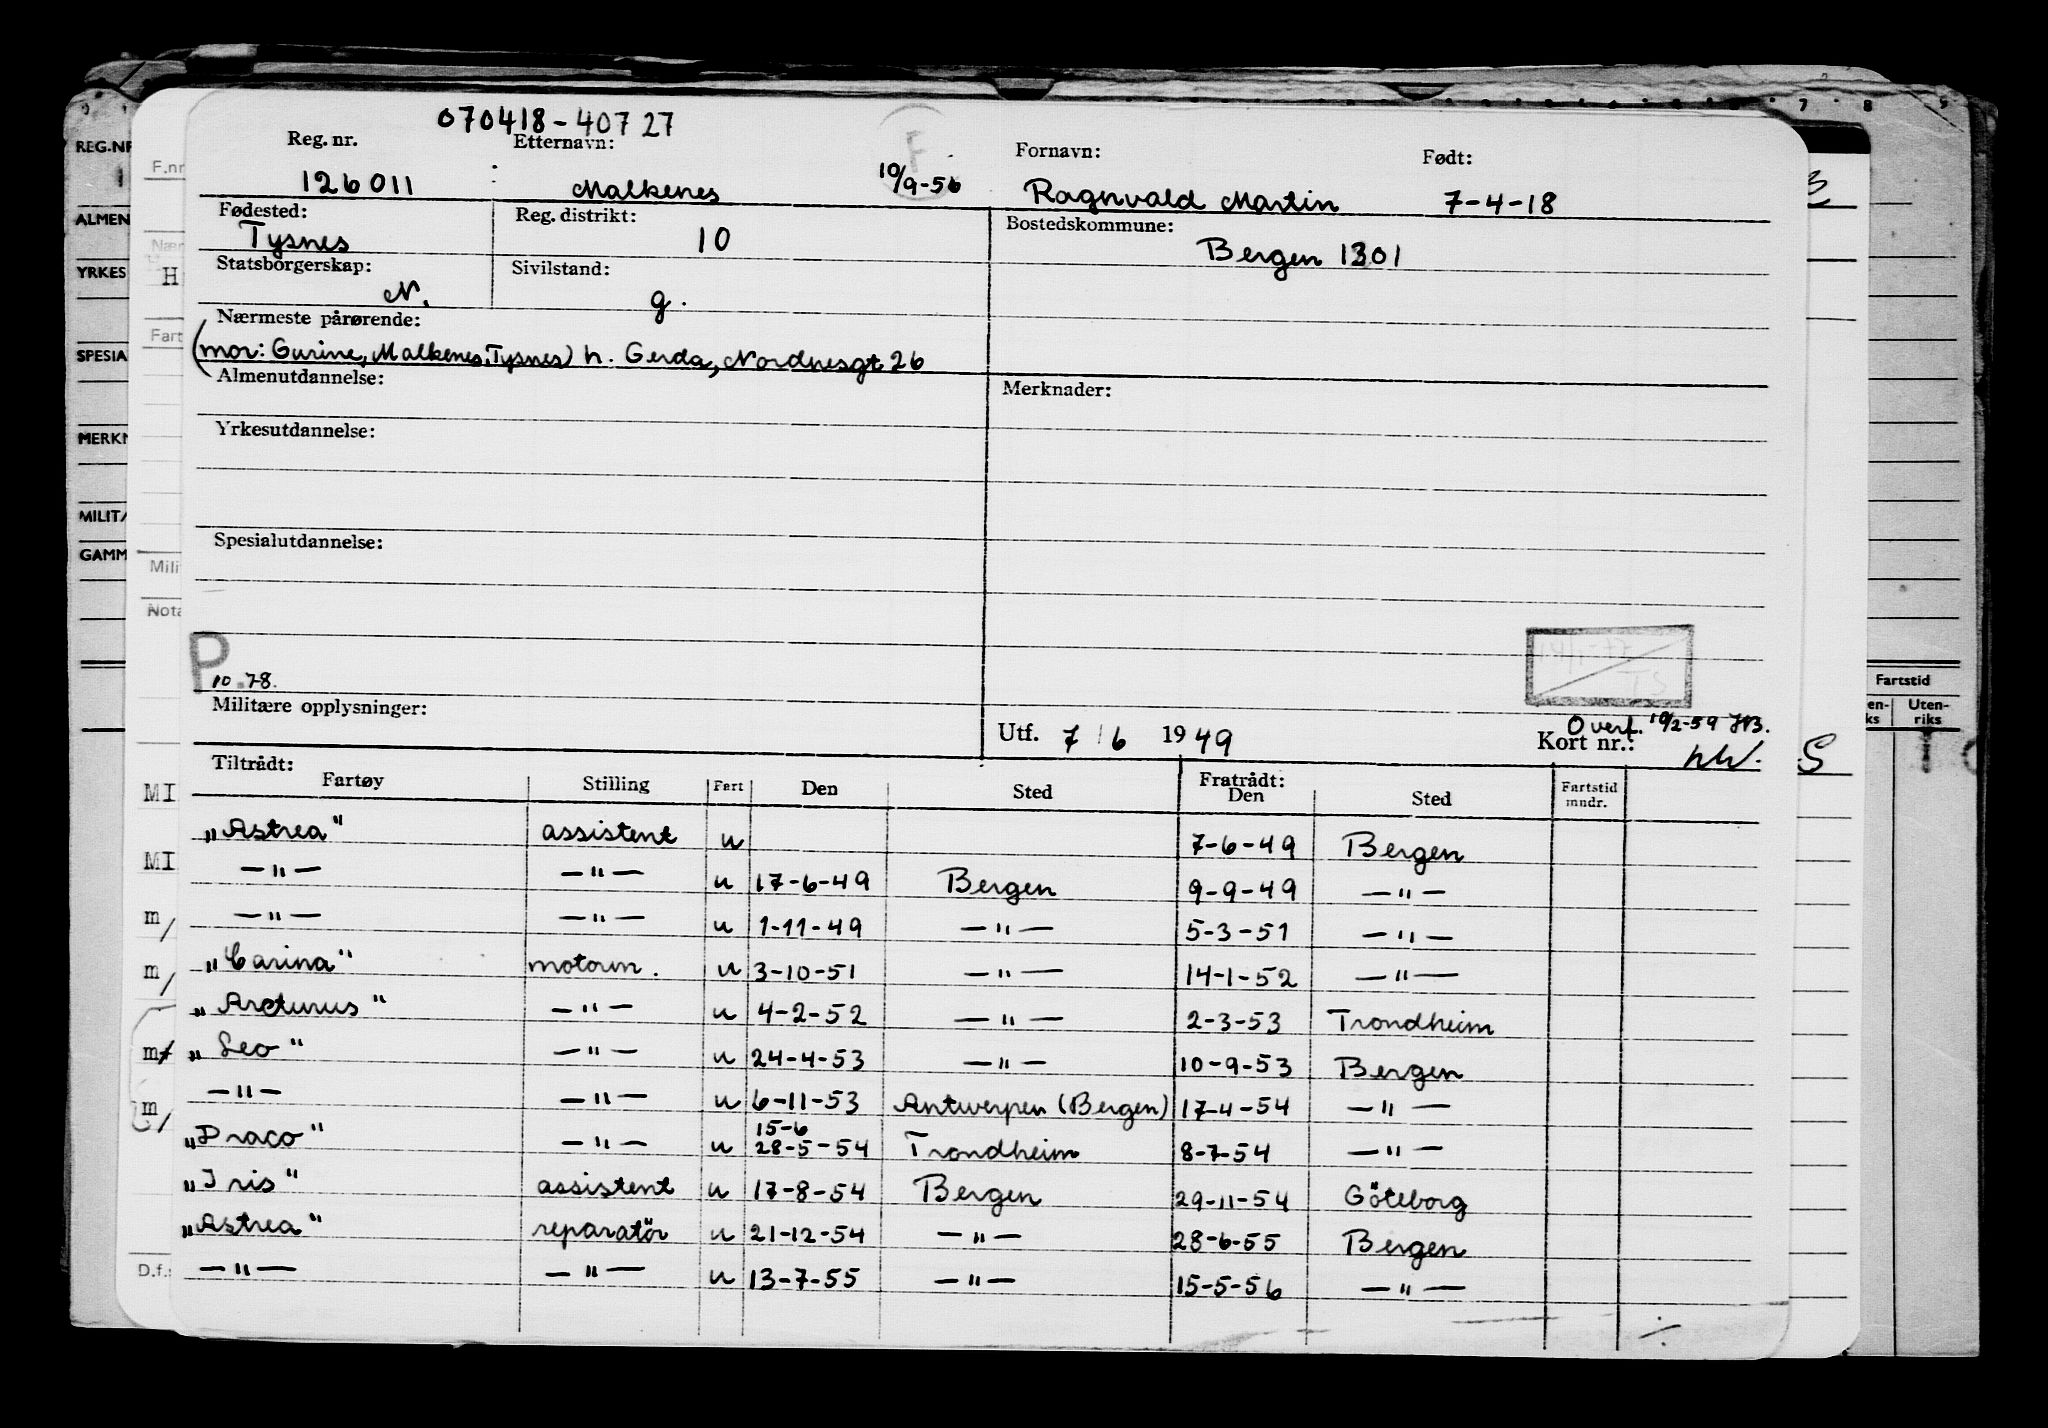 070418-40727
Reg. nr. Etternavn: Fornavn: Født:
126011 Malkenes 10/9-56 Ragnvald Martin 7-4-18
Fødested: Reg. distrikt: Bostedskommune:
Tysnes 10 Bergen 1301
Statsborgerskap: Sivilstand:
N. g.
Nærmeste pårørende:
(mor: Gurine, Malkenes, Tysnes) h. Gerda, Nordnesgt 26
Almenutdannelse: Merknader:
Yrkesutdannelse:
Spesialutdannelse:
P
10.78.
Militære opplysninger:
Overf. 10/2-59
Utf. 7/6 1949 Kort nr.:
Tiltrådt: Fratrådt:
Fartøy Stilling Fart Den Sted Den Sted Fartstid mndr.
„Astrea" assistent u 7-6-49 Bergen
—"— —"— u 17-6-49 Bergen 9-9-49 —"—
—"— —"— u 1-11-49 —"— 5-3-51 —"—
„Carina" motorm. u 3-10-51 —"— 14-1-52 —"—
„Arcturus" —"— u 4-2-52 —"— 2-3-53 Trondheim
„Leo" —"— u 24-4-53 —"— 10-9-53 Bergen
—"— —"— u 6-11-53 Antwerpen (Bergen) 17-4-54 —"—
15-6
„Draco" —"— u 28-5-54 Trondheim 8-7-54 —"—
„Iris" assistent u 17-8-54 Bergen 29-11-54 Göteborg
„Astrea" reparatör u 21-12-54 —"— 28-6-55 Bergen
—"— —"— u 13-7-55 —"— 15-5-56 —"—
REG.NR
ALMEN
YRKES
SPESIA
MERKN
MILITÆ
GAMM
F.nr
Fart
Mili
Nota
MI
MI
m/
m/
m/
m/
D.f.:
7 8 9
S
Fartstid
Uten-
riks